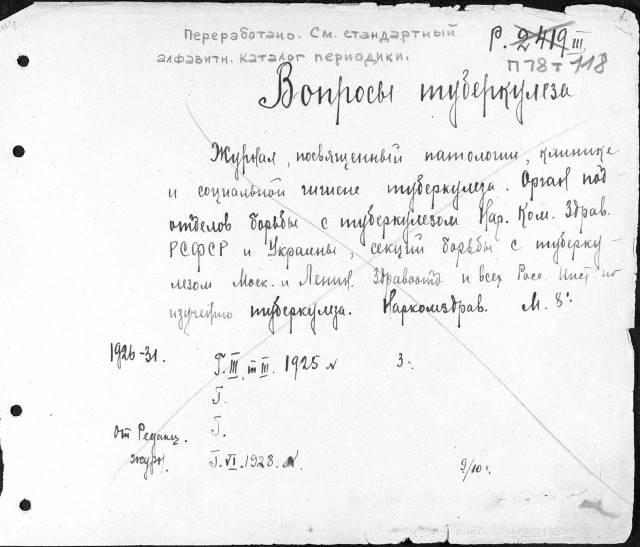 Переработано. См. стандартный
алфавитн. каталог периодики.
Р. 2419 III
П78т 118
Вопросы туберкулеза
Журнал, посвященный патологии, клинике
и социальной гигиене туберкулеза. Орган под-
отделов борьбы с туберкулезом Нар. Ком. Здрав.
РСФСР и Украины, секций борьбы с туберку-
лезом Моск. и Ленин. Здравотд и всех Росс. Инст. по
изучению туберкулеза. Наркомздрав. М. 8°.
1926-31. Г. III, т III. 1925 N 3.
Г.
От Редакц. Г.
журн. Г. VI. 1928. N. 9/10.